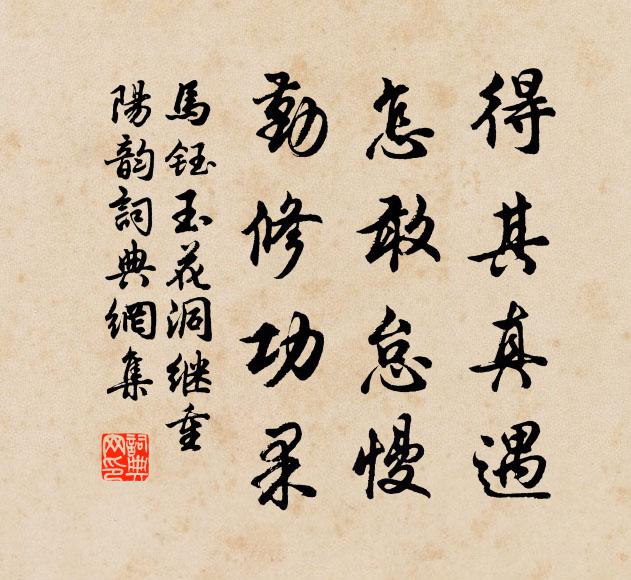 得其真遇
怎敢怠慢
勤修功果
馬鈺玉花洞继重
陽韵詞典網集
詞典
网印